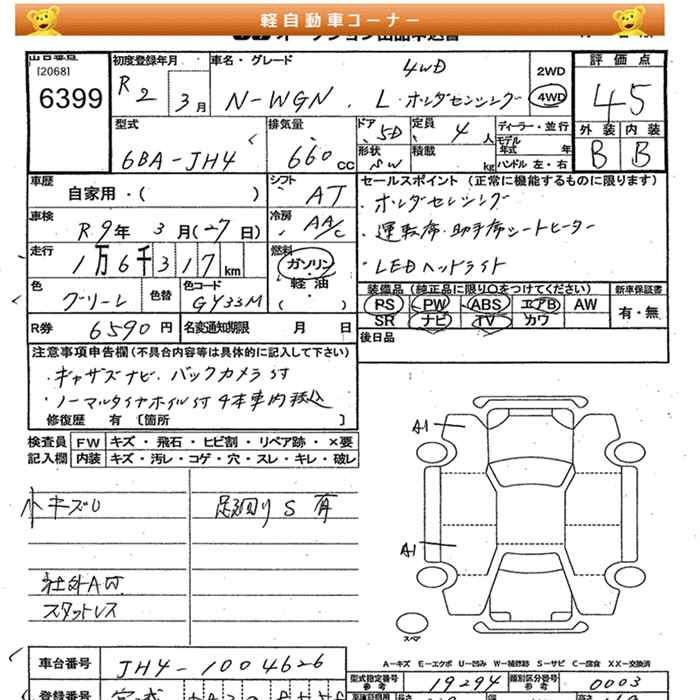 軽自動車コーナー
[2068]
6399
初度登録年月
R2 3月
車名・グレード
4WD
N-WGN . L・ホンダセンシング
2WD
4WD
評価点
4.5
外装 内装
B B
型式
6BA-JH4
排気量
660cc
ドア 5D
定員 4人
形状 SW
積載 kg
ディーラー・並行
モデル年式 年
ハンドル 左・右
車歴
自家用・( )
シフト
AT
車検
R9年 3月(27日)
冷房
AA/C
走行
1万6千317km
燃料
ガソリン
軽油
( ・ )
色
グリーン
色替
色コード
GY33M
R券 6590円
名変通知期限 月 日
セールスポイント (正常に機能するものに限ります)
・ホンダセンシング
・運転席・助手席シートヒーター
・LEDヘッドライト
装備品(純正品に限り○をつけてください)
新車保証書
PS PW ABS エアB AW
SR ナビ TV カワ
有・無
後日品
注意事項申告欄(不具合内容等は具体的に記入して下さい)
・ギャザズナビ.バックカメラ付
・ノーマルタイヤホイル付4本車内積込
修復歴 有 〔箇所 〕
検査員記入欄
FW キズ・飛石・ヒビ割・リペア跡・×要
内装 キズ・汚レ・コゲ・穴・スレ・キレ・破レ
小キズU
足廻りS有
社外AW
スタットレス
A1
A1
スペア
A-キズ E-エクボ U-凹み W-補修跡 S-サビ C-腐食 XX-交換済
車台番号
JH4-1004626
型式指定番号
参考
19294
類別区分番号
参考
0003
登録番号